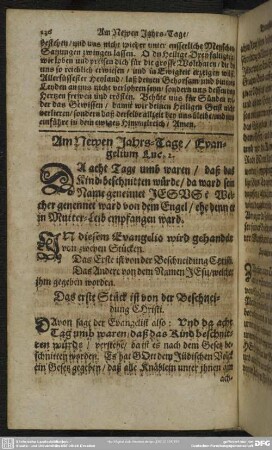 236 Am Newen Jahrs-Tage/
bestehen/ und uns nicht wieder unter menschliche
Satzungen zwingen lassen. O du Heilige Dreyfaltigkeit
wir loben und preisen dich für die grosse Wolthaten/ die du
uns so reichlich erwiesen/ und in Ewigkeit erzeigen wilt.
Allerliebster Heyland/ laß deinen Gehorsam und dein
Leyden an uns nicht verlohren seyn/ sondern uns dessen von
Hertzen frewen und trösten. Behüte uns für Sünden wider
das Gewissen/ damit wir deinen Heiligen Geist nicht
verlieren/ sondern daß derselbe allzeit bey uns bleibe und
einführe in dein ewiges Himmelreich/ Amen.
Am Newen Jahrs-Tage/ Evan-
gelium Luc. 2.
DA acht Tage umb waren/ daß das
Kind beschnitten würde/ da ward sein
Name genennet JESUS: Wel-
cher genennet ward von dem Engel/ ehe denn er
in Mutter-Leib empfangen ward.
IN diesem Evangelio wird gehandelt
von zweyen Stücken.
Das Erste ist von der Beschneidung Christi.
Das Andere von dem Namen JEsu/ welcher
ihm gegeben worden.
Das erste Stück ist von der Beschnei-
dung CHristi.
DAvon sagt der Evangelist also: Und da acht
Tag umb waren/ daß das Kind beschnit-
ten würde/ verstehe/ da ist es nach dem Gesetz be-
schnitten worden. Es hat GOtt dem Jüdischen Volck
ein Gesetz gegeben/ daß alle Knäblein unter ihnen am
ach-